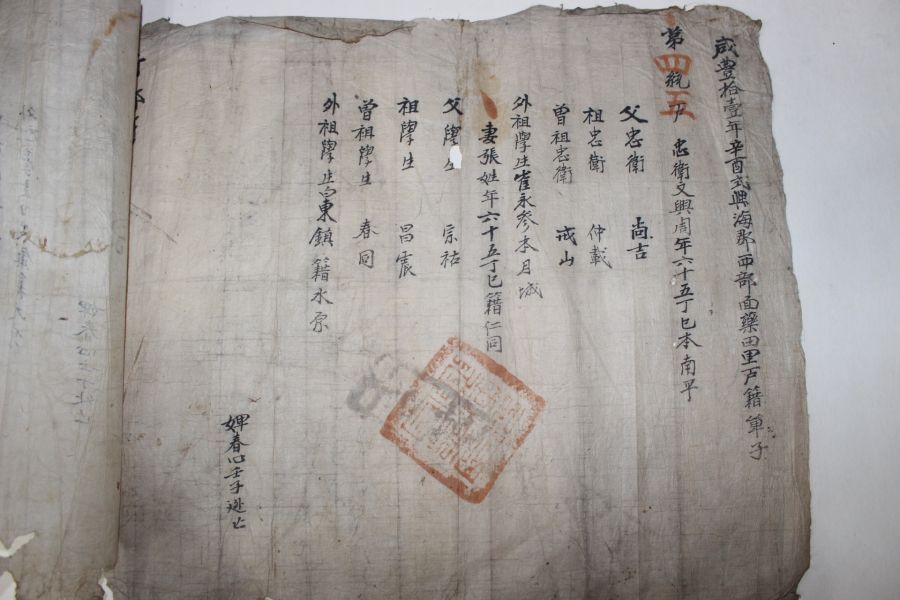 咸豊拾壹年辛酉式興海郡西部面藥田里戶籍單子
第四統五戶 忠衛文興周年六十五丁巳本南平
父忠衛 尚吉
祖忠衛 仲載
曽祖忠衛 戒山
外祖學生崔永參本月城
妻張姓年六十五丁巳籍仁同
父學生 宗祐
祖學生 昌震
曽祖學生 春同
外祖學生白東鎮籍水原
婢春心壬子逃亡